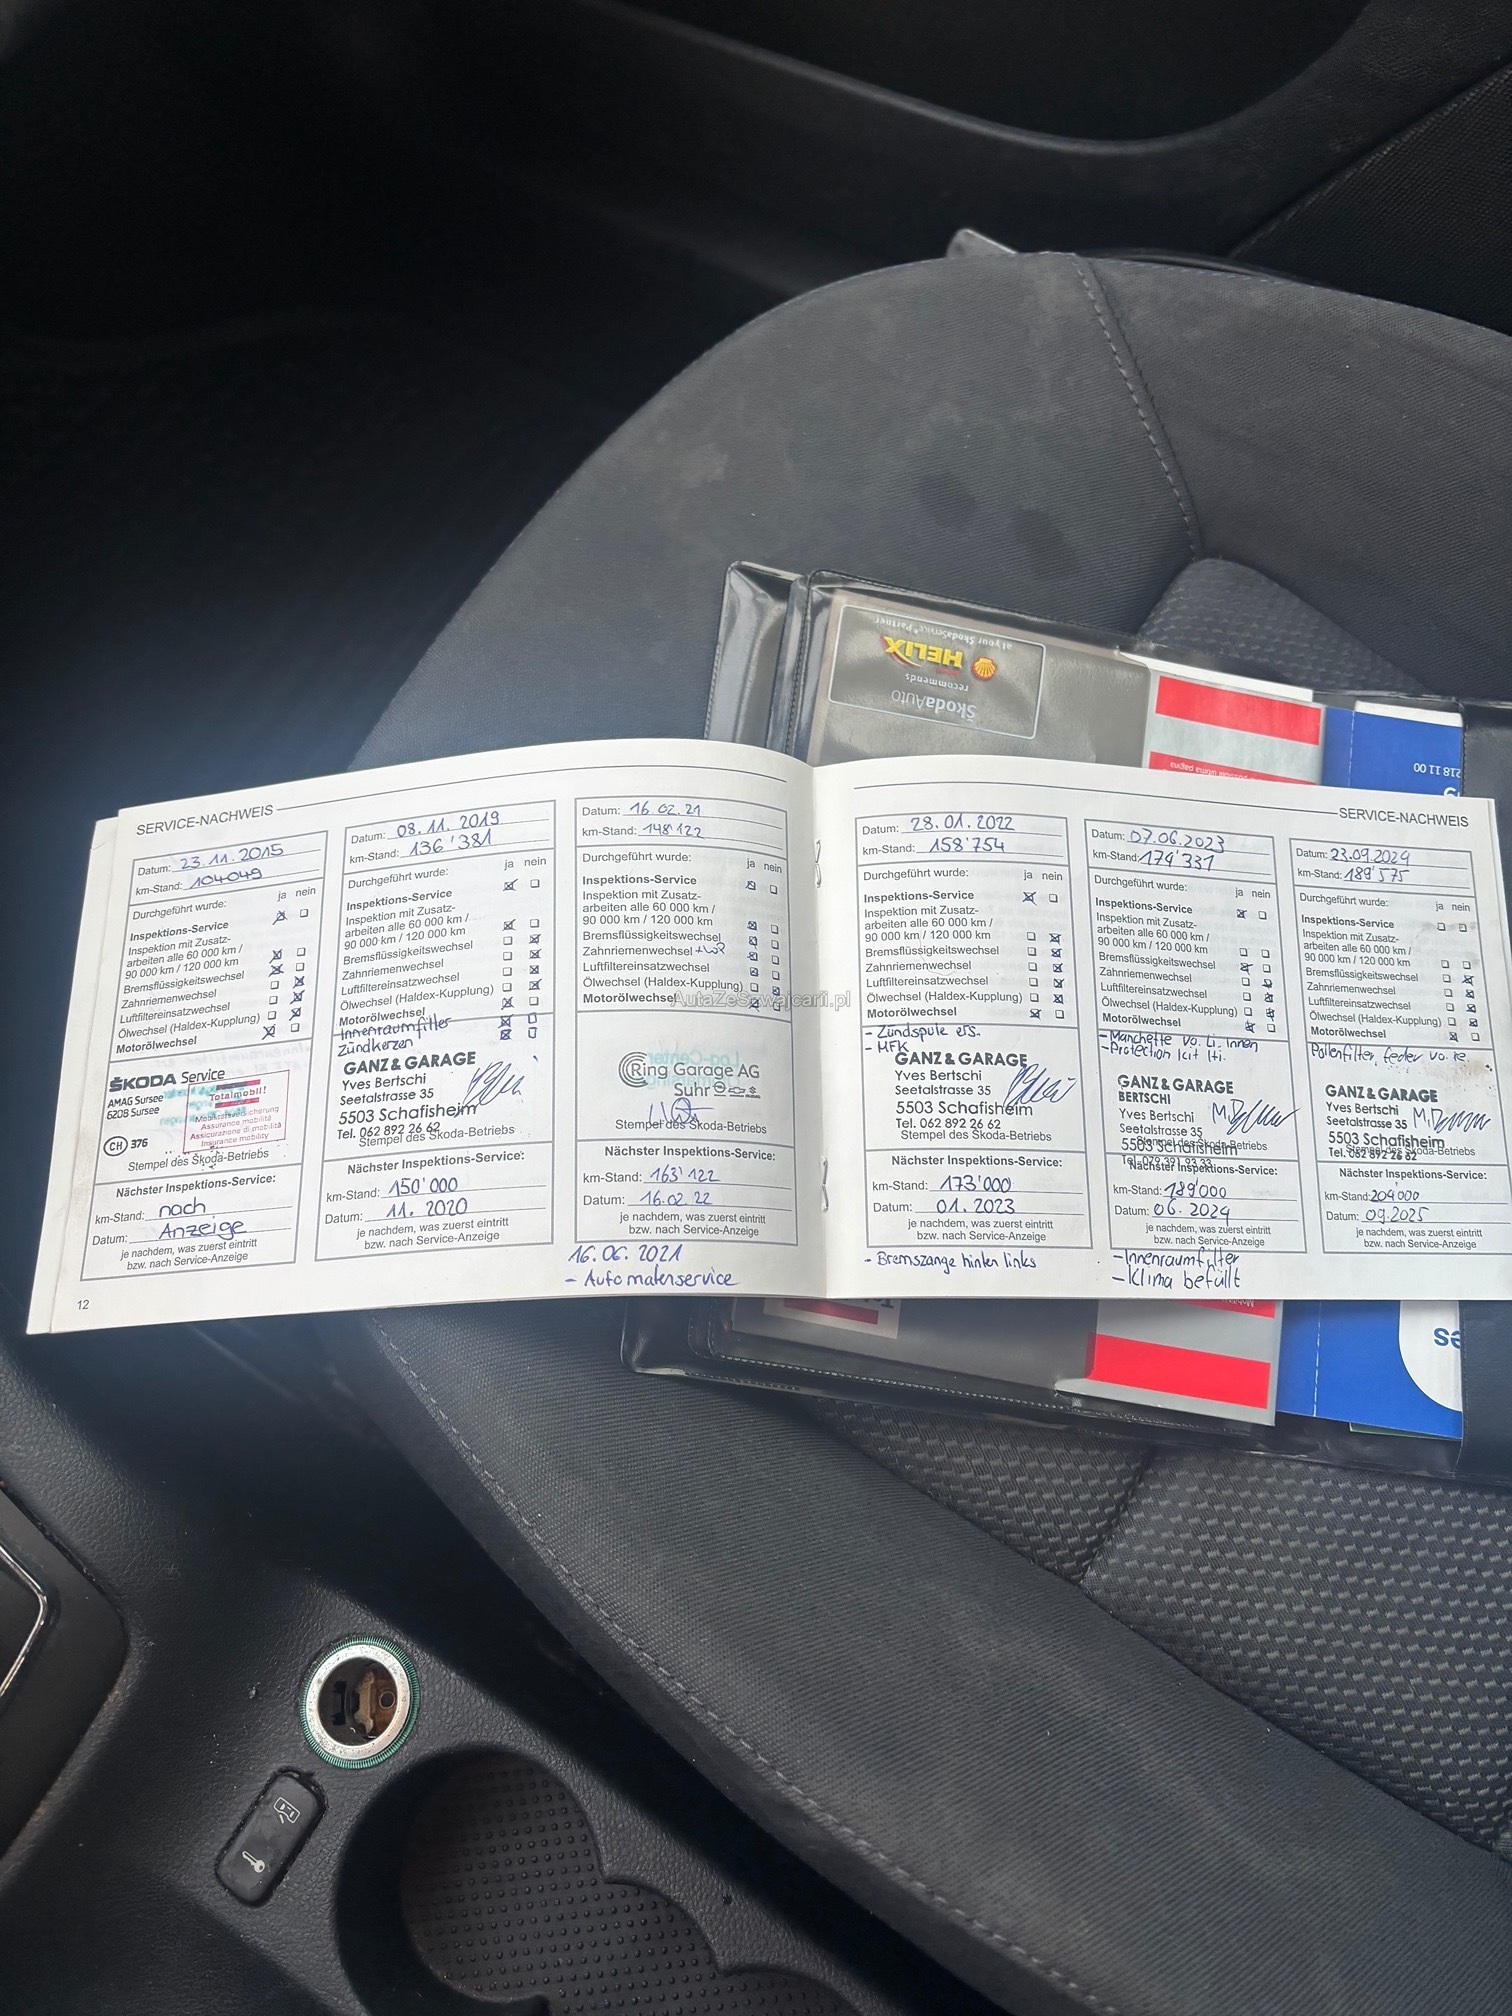 SERVICE-NACHWEIS
Datum: 23.11.2015
km-Stand: 104049
Durchgeführt wurde: ja nein
Inspektions-Service
Inspektion mit Zusatz-
arbeiten alle 60 000 km /
90 000 km / 120 000 km
Bremsflüssigkeitswechsel
Zahnriemenwechsel
Luftfiltereinsatzwechsel
Ölwechsel (Haldex-Kupplung)
Motorölwechsel
ŠKODA Service
AMAG Sursee
6208 Sursee
CH 376
Totalmobil!
Mobilitätsversicherung
Assurance mobilité
Assicurazione di mobilità
Insurance mobility
Stempel des Škoda-Betriebs
Nächster Inspektions-Service:
km-Stand: nach
Datum: Anzeige
je nachdem, was zuerst eintritt
bzw. nach Service-Anzeige
12
Datum: 08.11.2019
km-Stand: 136'381
Durchgeführt wurde: ja nein
Inspektions-Service
Inspektion mit Zusatz-
arbeiten alle 60 000 km /
90 000 km / 120 000 km
Bremsflüssigkeitswechsel
Zahnriemenwechsel
Luftfiltereinsatzwechsel
Ölwechsel (Haldex-Kupplung)
Motorölwechsel
Innenraumfilter
Zündkerzen
GANZ & GARAGE
Yves Bertschi
Seetalstrasse 35
5503 Schafisheim
Tel. 062 892 26 62
Stempel des Škoda-Betriebs
Nächster Inspektions-Service:
km-Stand: 150'000
Datum: 11.2020
je nachdem, was zuerst eintritt
bzw. nach Service-Anzeige
Datum: 16.02.21
km-Stand: 148'122
Durchgeführt wurde: ja nein
Inspektions-Service
Inspektion mit Zusatz-
arbeiten alle 60 000 km /
90 000 km / 120 000 km
Bremsflüssigkeitswechsel
Zahnriemenwechsel
Luftfiltereinsatzwechsel
Ölwechsel (Haldex-Kupplung)
Motorölwechsel
Ring Garage AG
Suhr
Stempel des Škoda-Betriebs
Nächster Inspektions-Service:
km-Stand: 163'122
Datum: 16.02.22
je nachdem, was zuerst eintritt
bzw. nach Service-Anzeige
16.06.2021
- Automatenservice
SERVICE-NACHWEIS
Datum: 28.01.2022
km-Stand: 158'754
Durchgeführt wurde: ja nein
Inspektions-Service
Inspektion mit Zusatz-
arbeiten alle 60 000 km /
90 000 km / 120 000 km
Bremsflüssigkeitswechsel
Zahnriemenwechsel
Luftfiltereinsatzwechsel
Ölwechsel (Haldex-Kupplung)
Motorölwechsel
- Zündspule ers.
- MFK
GANZ & GARAGE
Yves Bertschi
Seetalstrasse 35
5503 Schafisheim
Tel. 062 892 26 62
Stempel des Škoda-Betriebs
Nächster Inspektions-Service:
km-Stand: 173'000
Datum: 01.2023
je nachdem, was zuerst eintritt
bzw. nach Service-Anzeige
- Bremszange hinten links
Datum: 07.06.2023
km-Stand: 174'331
Durchgeführt wurde: ja nein
Inspektions-Service
Inspektion mit Zusatz-
arbeiten alle 60 000 km /
90 000 km / 120 000 km
Bremsflüssigkeitswechsel
Zahnriemenwechsel
Luftfiltereinsatzwechsel
Ölwechsel (Haldex-Kupplung)
Motorölwechsel
- Manchette vo. li. innen
- Protection kit
GANZ & GARAGE
BERTSCHI
Yves Bertschi
Seetalstrasse 35
5503 Schafisheim
Stempel des Škoda-Betriebs
Nächster Inspektions-Service:
km-Stand: 189'000
Datum: 06.2024
je nachdem, was zuerst eintritt
bzw. nach Service-Anzeige
- Innenraumfilter
- Klima befüllt
Datum: 23.09.2024
km-Stand: 189'575
Durchgeführt wurde: ja nein
Inspektions-Service
Inspektion mit Zusatz-
arbeiten alle 60 000 km /
90 000 km / 120 000 km
Bremsflüssigkeitswechsel
Zahnriemenwechsel
Luftfiltereinsatzwechsel
Ölwechsel (Haldex-Kupplung)
Motorölwechsel
Pollenfilter, feder vo. re.
GANZ & GARAGE
Yves Bertschi
Seetalstrasse 35
5503 Schafisheim
Stempel des Škoda-Betriebs
Tel. 062 892 26 62
Nächster Inspektions-Service:
km-Stand: 204000
Datum: 09.2025
je nachdem, was zuerst eintritt
bzw. nach Service-Anzeige
ŠkodaAuto
recommends
HELIX
at your ŠkodaService Partner
218 11 00
AutaZeSzwajcarii.pl